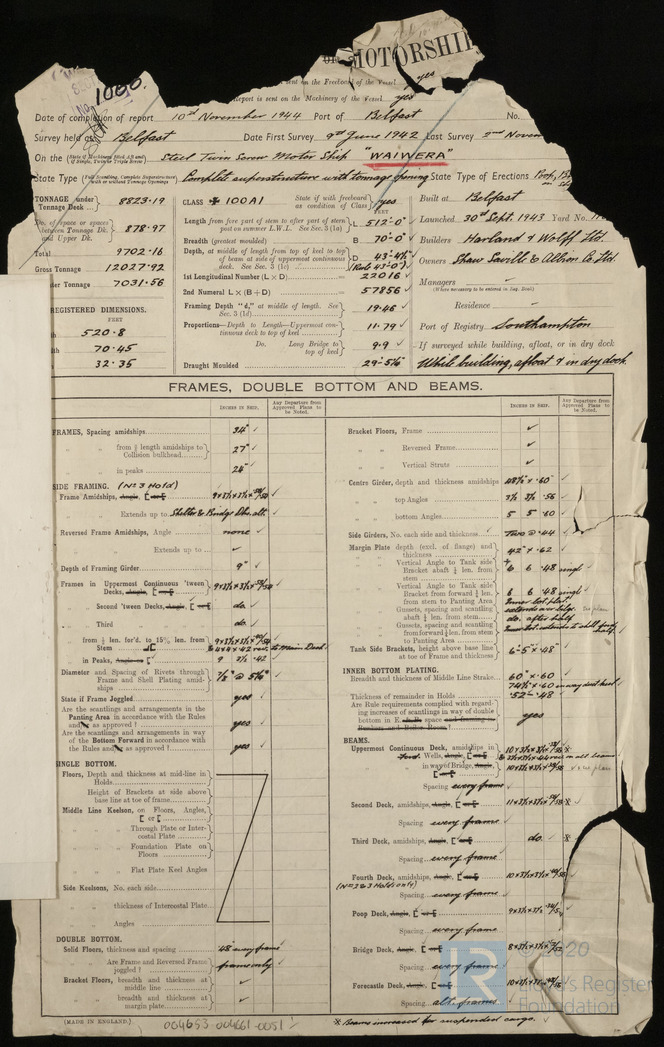 OF MOTORSHIP
1060.
sent on the Freeboard of the Vessel yes
Report is sent on the Machinery of the Vessel yes
Date of completion of report 10th November 1944 Port of Belfast No.
Survey held at Belfast Date First Survey 9th June 1942 Last Survey 2nd Novem
On the (State if Machinery fitted Aft and if Single, Twin or Triple Screw) Steel Twin Screw Motor Ship "WAIWERA"
State Type (Full Scantling, Complete Superstructure with or without Tonnage Openings) Complete superstructure with tonnage opening State Type of Erections Poop,
TONNAGE under Tonnage Deck 8823.19
Do. of space or spaces between Tonnage Dk. and Upper Dk. 878.97
Total 9702.16
Gross Tonnage 12027.92
Tonnage 7031.56
REGISTERED DIMENSIONS.
FEET
520.8
70.45
32.35
CLASS ✠ 100A1 State if with freeboard as condition of Class yes
FEET
Length from fore part of stem to after part of stern post on summer L.W.L. See Sec. 3 (1a) L 512'-0"
Breadth (greatest moulded) B 70'-0"
Depth, at middle of length from top of keel to top of beam at side of uppermost continuous deck. See Sec. 3 (1c) D 43'-4½"
(Rule 43'-0")
1st Longitudinal Number (L × D) 22016
2nd Numeral L × (B + D) 57856
Framing Depth "d," at middle of length. See Sec. 3 (1d) 19.46
Proportions—Depth to Length—Uppermost continuous deck to top of keel 11.79
Do. Long Bridge to top of keel 9.9
Draught Moulded 29'-5⅛"
Built at Belfast
Launched 30th Sept. 1943 Yard No.
Builders Harland & Wolff Ltd.
Owners Shaw Savill & Albion Co. Ltd
Managers —
(Where necessary to be entered in Reg. Book)
Residence —
Port of Registry Southampton
If surveyed while building, afloat, or in dry dock
While building, afloat & in dry dock.
FRAMES, DOUBLE BOTTOM AND BEAMS.
INCHES IN SHIP. Any Departure from Approved Plans to be Noted.
FRAMES, Spacing amidships 34"
" " from ⅕ length amidships to Collision bulkhead 27"
" " in peaks 24"
SIDE FRAMING. (No 3 Hold)
Frame Amidships, Angle, [ or
" " Extends up to Shelter & Bridge Dks. alt.
Reversed Frame Amidships, Angle none
" " Extends up to
Depth of Framing Girder 9"
Frames in Uppermost Continuous 'tween Decks, Angle, [ or
" " Second 'tween Decks, Angle, [ or do.
" " Third do.
" " from ⅕ len. for'd. to 15% len. from Stem to Main Deck
" " in Peaks, Angle or 9 3½ .42
Diameter and Spacing of Rivets through Frame and Shell Plating amidships ⅞" @ 5⅛"
State if Frame Joggled yes
Are the scantlings and arrangements in the Panting Area in accordance with the Rules and/or as approved? yes
Are the scantlings and arrangements in way of the Bottom Forward in accordance with the Rules and/or as approved? yes
SINGLE BOTTOM.
Floors, Depth and thickness at mid-line in Holds
Height of Brackets at side above base line at toe of frame
Middle Line Keelson, on Floors, Angles, [ or
" " Through Plate or Intercostal Plate
" " Foundation Plate on Floors
" " Flat Plate Keel Angles
Side Keelsons, No. each side
" " thickness of Intercostal Plate
" " Angles
DOUBLE BOTTOM.
Solid Floors, thickness and spacing .48 every frame
" " Are Frame and Reversed Frame joggled? frame only
Bracket Floors, breadth and thickness at middle line
" " breadth and thickness at margin plate
Bracket Floors, Frame
" " Reversed Frame
" " Vertical Struts
Centre Girder, depth and thickness amidships 48½" × .60
" " top Angles 3½ 3½ .56
" " bottom Angles 5 5 .60
Side Girders, No. each side and thickness Two @ .44
Margin Plate depth (excl. of flange) and thickness 42" × .62
" " Vertical Angle to Tank side Bracket abaft ¼ len. from stem 6 6 .48 single
" " Vertical Angle to Tank side Bracket from forward ¼ len. from stem to Panting Area 6 6 .48 single
" " Gussets, spacing and scantling abaft ¼ len. from stem
" " Gussets, spacing and scantling from forward ¼ len. from stem to Panting Area
Tank Side Brackets, height above base line at toe of Frame and thickness 6'-5" × .48"
INNER BOTTOM PLATING.
Breadth and thickness of Middle Line Strake 60" × .60
74½" × .60 in way duct keel
Thickness of remainder in Holds .52 - .48
Are Rule requirements complied with regarding increases of scantlings in way of double bottom in E. & B. space and framing in Bunkers and Boiler Room? yes
BEAMS.
Uppermost Continuous Deck, amidships in Wells, Angle, [ or
" " in way of Bridge, Angle, [ or
Spacing every frame
Second Deck, amidships, Angle, [ or
Spacing every frame
Third Deck, amidships, Angle, [ or do.
Spacing every frame
Fourth Deck, amidships, Angle, [ or
(No 2 & 3 Holds only)
Spacing every frame
Poop Deck, Angle, [ or
Spacing every frame
Bridge Deck, Angle, [ or
Spacing every frame
Forecastle Deck, Angle, [ or
Spacing alt. frames
* Beams increased for suspended cargo.
(MADE IN ENGLAND.)
004653-004661-0051
LR
© 2020
Lloyd's Register
Foundation